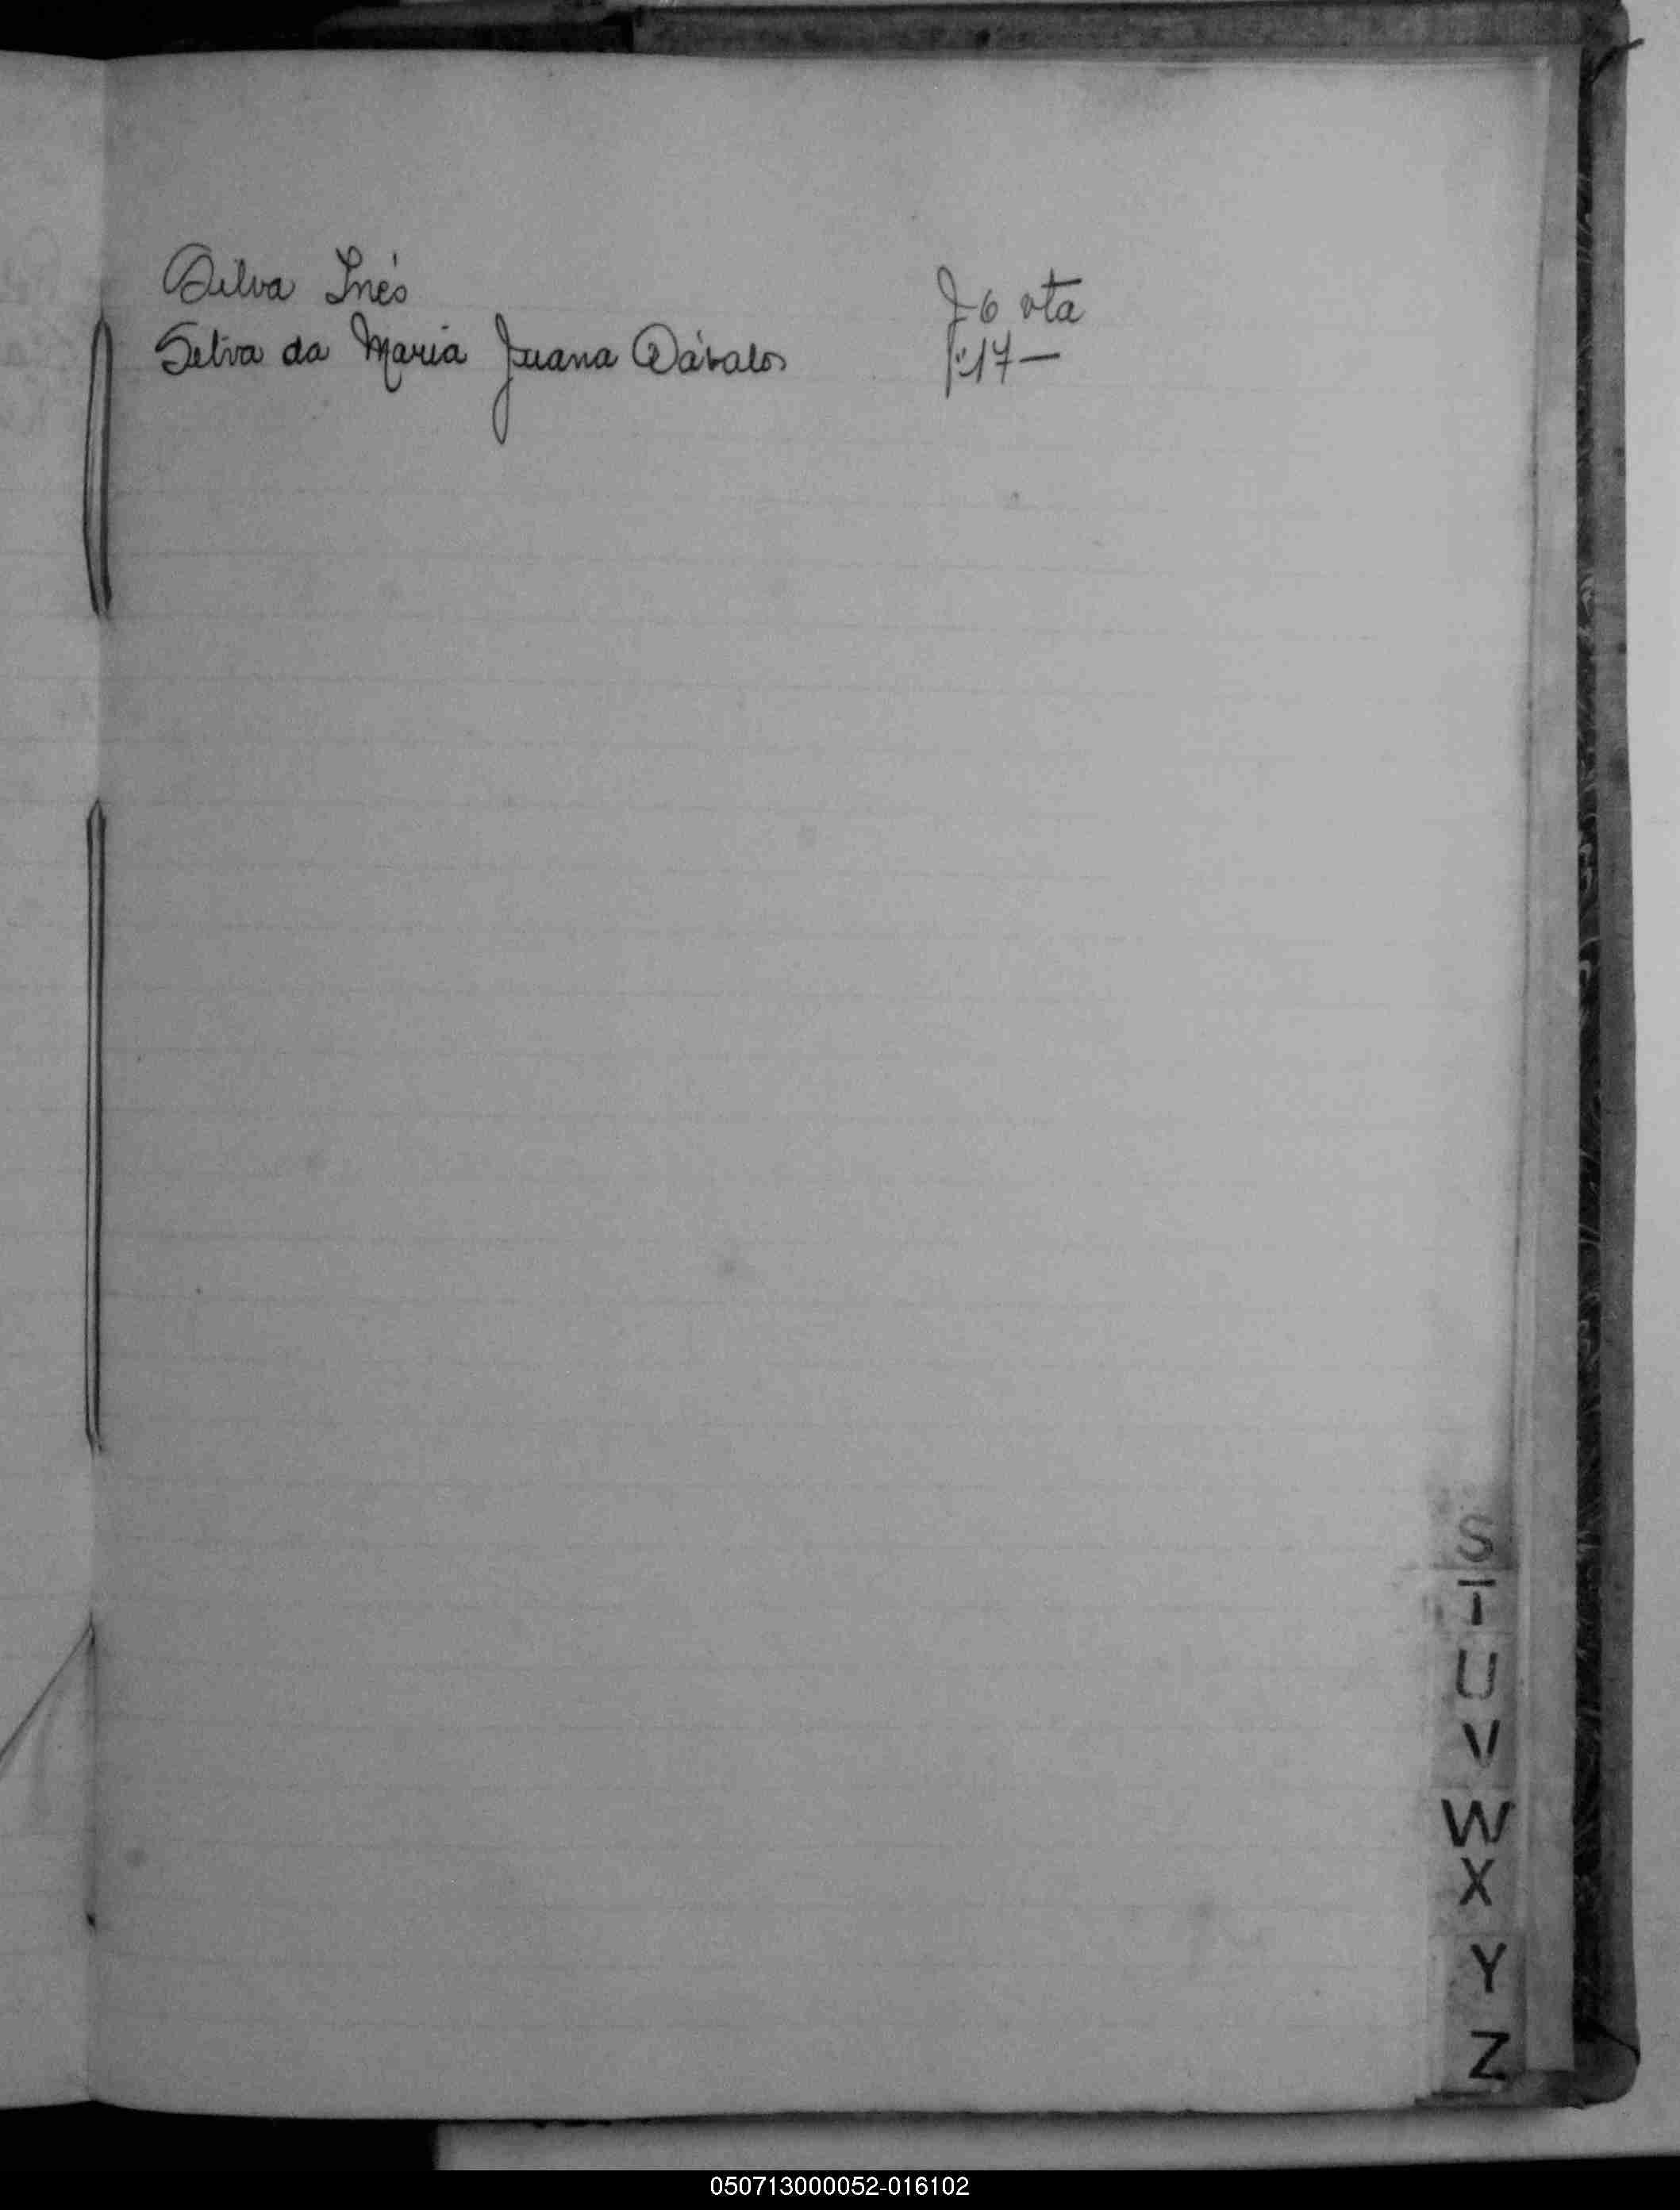 Silva Inés f 6 vta
Silva da Maria Juana Dávalos f. 17 —
S
T
U
V
W
X
Y
Z
050713000052-016102